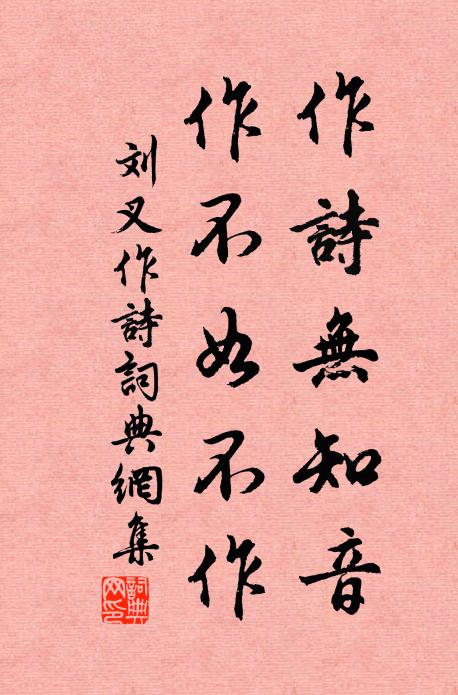 作詩無知音
作不如不作
刘叉作詩詞典網集
詞典网印